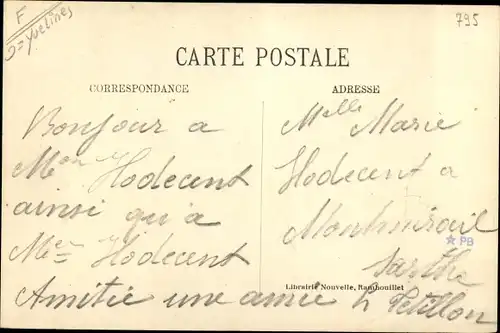 F
D=Yvelines
795
CARTE POSTALE
CORRESPONDANCE
ADRESSE
Bonjour a
Mon Hodecent
ainsi qu'a
Men Hodecent
Amitie une amie L Petillon
Melle Marie
Hodecent a
Montmirail
Sarthe
PB
Librairie Nouvelle, Rambouillet